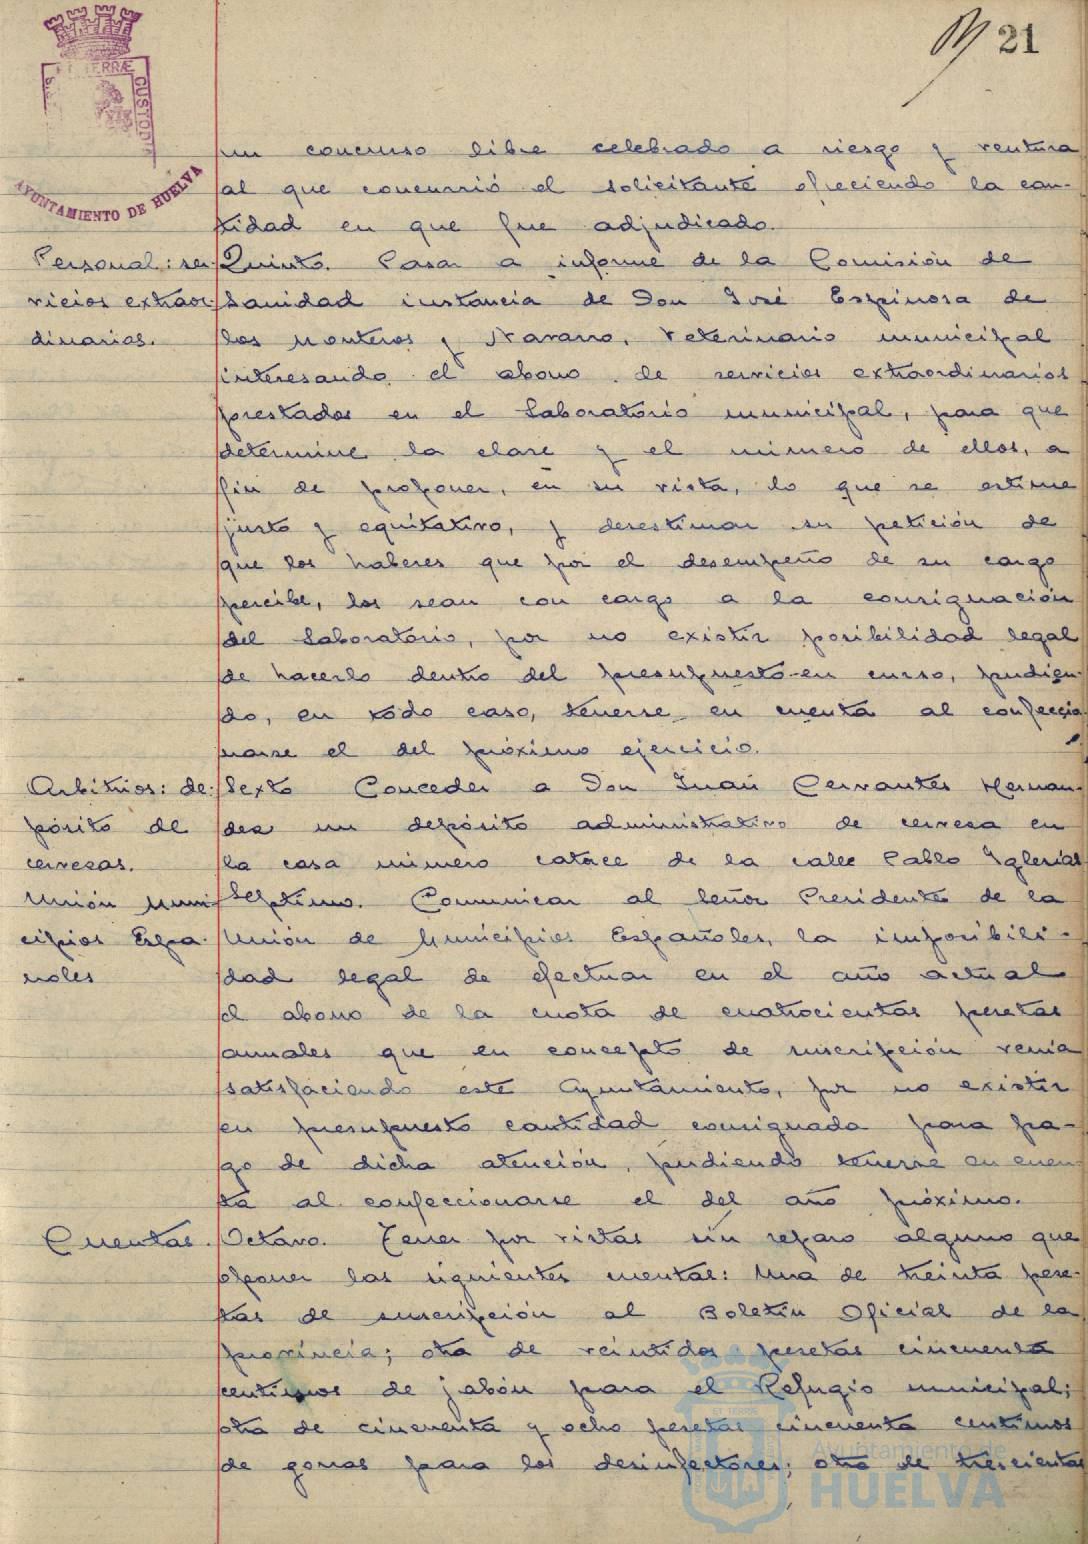 21
ET TERRÆ
CUSTODIA
AYUNTAMIENTO DE HUELVA
un concurso libre celebrado a riesgo y ventura
al que concurrió el solicitante ofreciendo la can-
tidad en que fue adjudicado.
Personal: ser-
vicios extraor-
dinarios.
Quinto. Pasar a informe de la Comisión de
Sanidad instancia de Don José Espinosa de
los Monteros y Navarro, Veterinario municipal
interesando el abono de servicios extraordinarios
prestados en el Laboratorio municipal, para que
determine la clase y el número de ellos, a
fin de proponer, en su vista, lo que se estime
justo y equitativo, y desestimar su petición de
que los haberes que por el desempeño de su cargo
percibe, los sean con cargo a la consignación
del Laboratorio, por no existir posibilidad legal
de hacerlo dentro del presupuesto en curso, pudien-
do, en todo caso, tenerse en cuenta al confeccio-
narse el del próximo ejercicio.
Arbitrios: de-
pósito de
cervezas.
Sexto Conceder a Don Juan Cervantes Hernan-
dez un depósito administrativo de cerveza en
la casa número catorce de la calle Pablo Iglesias
Unión Muni-
cipios Espa-
ñoles
Septimo. Comunicar al Señor Presidente de la
Unión de Municipios Españoles, la imposibili-
dad legal de efectuar en el año actual
el abono de la cuota de cuatrocientas pesetas
anuales que en concepto de suscripción venia
satisfaciendo este Ayuntamiento, por no existir
en presupuesto cantidad consignada para pa-
go de dicha atención, pudiendo tenerse en cuen-
ta al confeccionarse el del año próximo.
Cuentas.
Octavo. Tener por vistas sin reparo alguno que
oponer las siguientes cuentas: Una de treinta pese-
tas de suscripción al Boletín Oficial de la
provincia; otra de veintidos pesetas cincuenta
centimos de jabón para el Refugio municipal;
otra de cincuenta y ocho pesetas cincuenta centimos
de gorras para los desinfectores; otra de trescientas
Ayuntamiento de
HUELVA